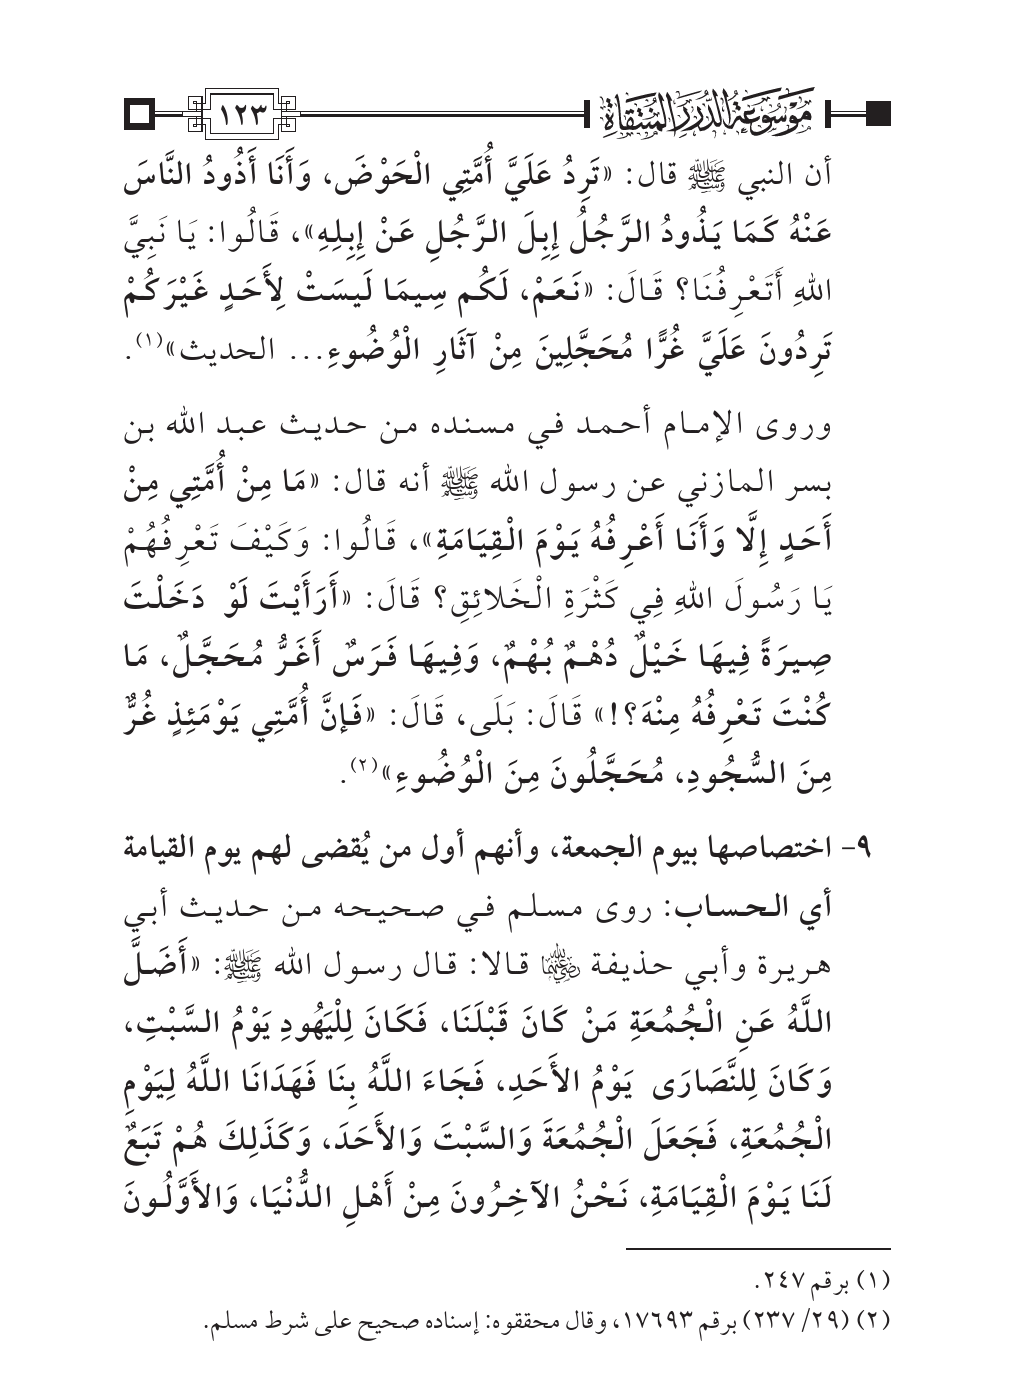 موسوعة الدرر المنتقاة ١٢٣
أن النبي ﷺ قال: «تَرِدُ عَلَيَّ أُمَّتِي الْحَوْضَ، وَأَنَا أَذُودُ النَّاسَ
عَنْهُ كَمَا يَذُودُ الرَّجُلُ إِبِلَ الرَّجُلِ عَنْ إِبِلِهِ»، قَالُوا: يَا نَبِيَّ
اللهِ أَتَعْرِفُنَا؟ قَالَ: «نَعَمْ، لَكُم سِيمَا لَيسَتْ لِأَحَدٍ غَيْرَكُمْ
تَرِدُونَ عَلَيَّ غُرًّا مُحَجَّلِينَ مِنْ آثَارِ الْوُضُوءِ... الحديث»(١).
وروى الإمام أحمد في مسنده من حديث عبد الله بن
بسر المازني عن رسول الله ﷺ أنه قال: «مَا مِنْ أُمَّتِي مِنْ
أَحَدٍ إِلَّا وَأَنَا أَعْرِفُهُ يَوْمَ الْقِيَامَةِ»، قَالُوا: وَكَيْفَ تَعْرِفُهُمْ
يَا رَسُولَ اللهِ فِي كَثْرَةِ الْخَلائِقِ؟ قَالَ: «أَرَأَيْتَ لَوْ دَخَلْتَ
صِيرَةً فِيهَا خَيْلٌ دُهْمٌ بُهْمٌ، وَفِيهَا فَرَسٌ أَغَرُّ مُحَجَّلٌ، مَا
كُنْتَ تَعْرِفُهُ مِنْهَ؟!» قَالَ: بَلَى، قَالَ: «فَإِنَّ أُمَّتِي يَوْمَئِذٍ غُرٌّ
مِنَ السُّجُودِ، مُحَجَّلُونَ مِنَ الْوُضُوءِ»(٢).
٩- اختصاصها بيوم الجمعة، وأنهم أول من يُقضى لهم يوم القيامة
أي الحساب: روى مسلم في صحيحه من حديث أبي
هريرة وأبي حذيفة رضي الله عنهما قالا: قال رسول الله ﷺ: «أَضَلَّ
اللَّهُ عَنِ الْجُمُعَةِ مَنْ كَانَ قَبْلَنَا، فَكَانَ لِلْيَهُودِ يَوْمُ السَّبْتِ،
وَكَانَ لِلنَّصَارَى يَوْمُ الأَحَدِ، فَجَاءَ اللَّهُ بِنَا فَهَدَانَا اللَّهُ لِيَوْمِ
الْجُمُعَةِ، فَجَعَلَ الْجُمُعَةَ وَالسَّبْتَ وَالأَحَدَ، وَكَذَلِكَ هُمْ تَبَعٌ
لَنَا يَوْمَ الْقِيَامَةِ، نَحْنُ الآخِرُونَ مِنْ أَهْلِ الدُّنْيَا، وَالأَوَّلُونَ
(١) برقم ٢٤٧.
(٢) (٢٩/ ٢٣٧) برقم ١٧٦٩٣، وقال محققوه: إسناده صحيح على شرط مسلم.